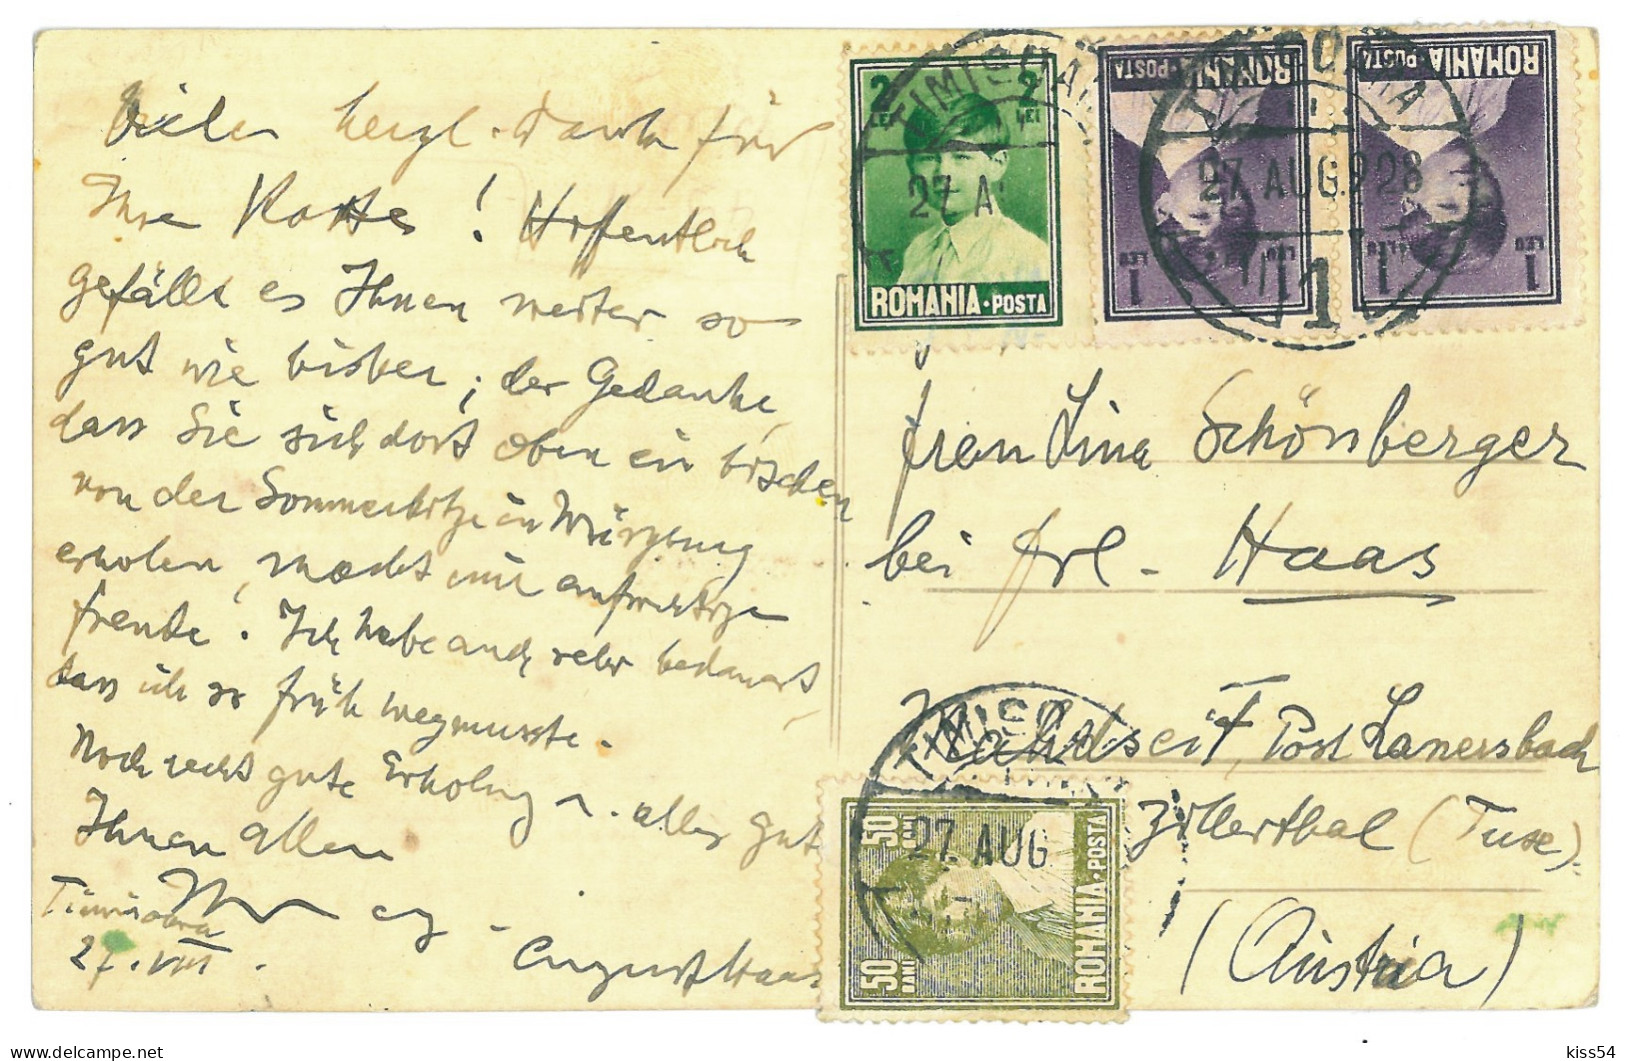 Vielen herzl. Dank für
Ihre Karte! Hoffentlich
gefällt es Ihnen weiter so
gut wie bisher; der Gedanke,
dass Sie sich dort oben ein bischen
von der Sommerhitze in Würzburg
erholen, macht mir aufrichtige
Freude. Ich habe auch sehr bedauert,
dass ich so früh wegmusste.
Noch recht gute Erholung u. alles gute
Ihnen allen
August Haas
Timisoara
27. VIII.
2 2
LEI LEI
ROMANIA·POSTA
TIMISOARA
27 A
ROMANIA·POSTA
1 LEU LEU 1
ROMANIA·POSTA
1 LEU LEU 1
TIMISOARA
27. AUG. 928
1
Frau Lina Schönberger
bei Frl. Haas
Lahdseit, Post Lanersbach
Zillerthal (Tuxe)
(Austria)
TIMISO
27. AUG
50 BANI 50 BANI
ROMANIA·POSTA
delcampe.net
kiss54